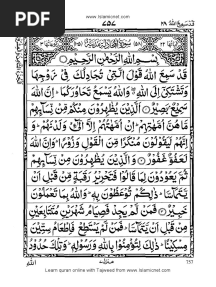 PDF
www.islamicnet.com
قَدْ سَمِعَ اللّٰهُ ٢٨
٧٥٧
بِسْمِ اللّٰهِ الرَّحْمٰنِ الرَّحِيْمِ
قَدْ سَمِعَ اللّٰهُ قَوْلَ الَّتِيْ تُجَادِلُكَ فِيْ زَوْجِهَا
وَتَشْتَكِيْٓ اِلَى اللّٰهِ وَاللّٰهُ يَسْمَعُ تَحَاوُرَكُمَا اِنَّ اللّٰهَ
سَمِيْعٌۢ بَصِيْرٌ اَلَّذِيْنَ يُظٰهِرُوْنَ مِنْكُمْ مِّنْ نِّسَآئِهِمْ
مَّا هُنَّ اُمَّهٰتِهِمْ اِنْ اُمَّهٰتُهُمْ اِلَّا الّٰٓـِٔيْ وَلَدْنَهُمْ وَ
اِنَّهُمْ لَيَقُوْلُوْنَ مُنْكَرًا مِّنَ الْقَوْلِ وَزُوْرًا وَاِنَّ اللّٰهَ
لَعَفُوٌّ غَفُوْرٌ وَالَّذِيْنَ يُظٰهِرُوْنَ مِنْ نِّسَآئِهِمْ
ثُمَّ يَعُوْدُوْنَ لِمَا قَالُوْا فَتَحْرِيْرُ رَقَبَةٍ مِّنْ قَبْلِ اَنْ
يَّتَمَآسَّا ذٰلِكُمْ تُوْعَظُوْنَ بِهٖ وَاللّٰهُ بِمَا تَعْمَلُوْنَ
خَبِيْرٌ فَمَنْ لَّمْ يَجِدْ فَصِيَامُ شَهْرَيْنِ مُتَتَابِعَيْنِ
مِنْ قَبْلِ اَنْ يَّتَمَآسَّا فَمَنْ لَّمْ يَسْتَطِعْ فَاِطْعَامُ سِتِّيْنَ
مِسْكِيْنًا ذٰلِكَ لِتُؤْمِنُوْا بِاللّٰهِ وَرَسُوْلِهٖ وَتِلْكَ حُدُوْدُ
اللّٰهِ
757
Learn quran online with Tajweed from www.islamicnet.com